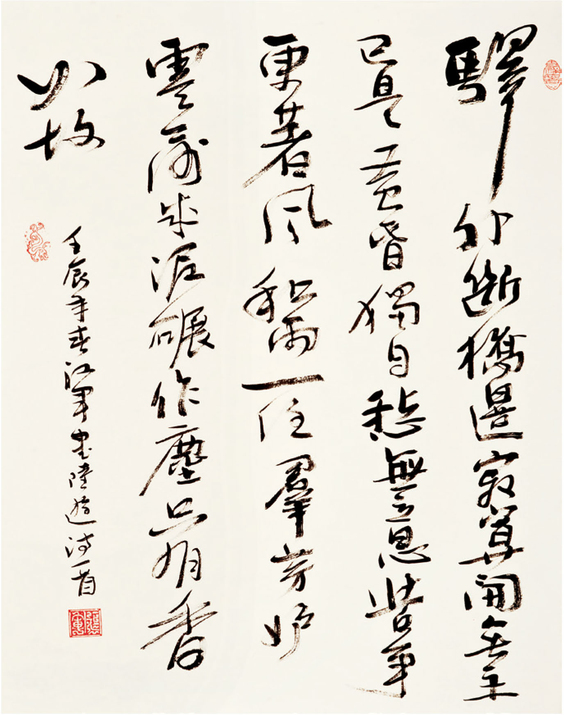 驛外斷橋邊寂寞開無主
已是黃昏獨自愁無意爭
更著風和雨一任羣芳妒
零落成泥碾作塵只有香
如故
壬辰年春江軍書陸游詩一首